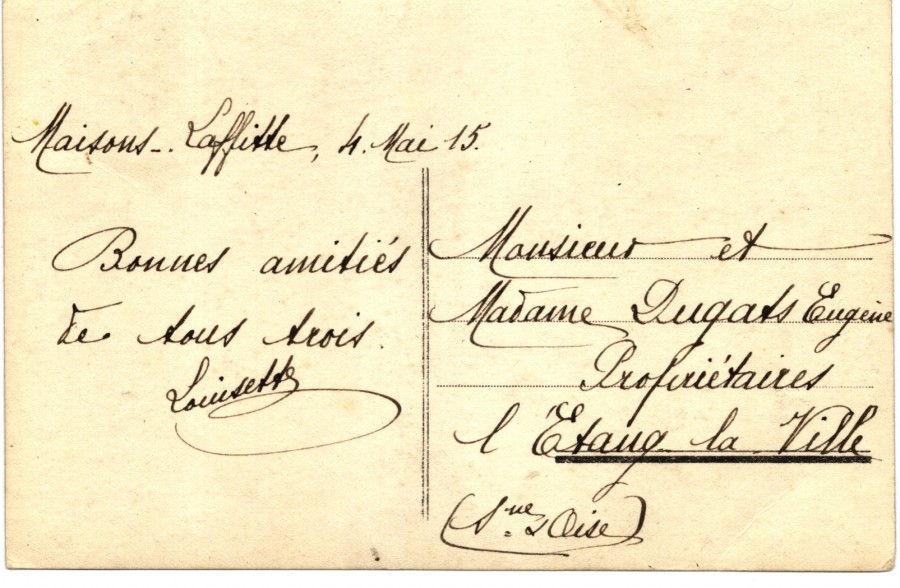 Maisons-Laffitte, 4. Mai 15.
Bonnes amitiés
de tous trois.
Louisette
Monsieur et
Madame Dugats Eugène
Propriétaires
l'Etang la Ville
(S.ne & Oise)